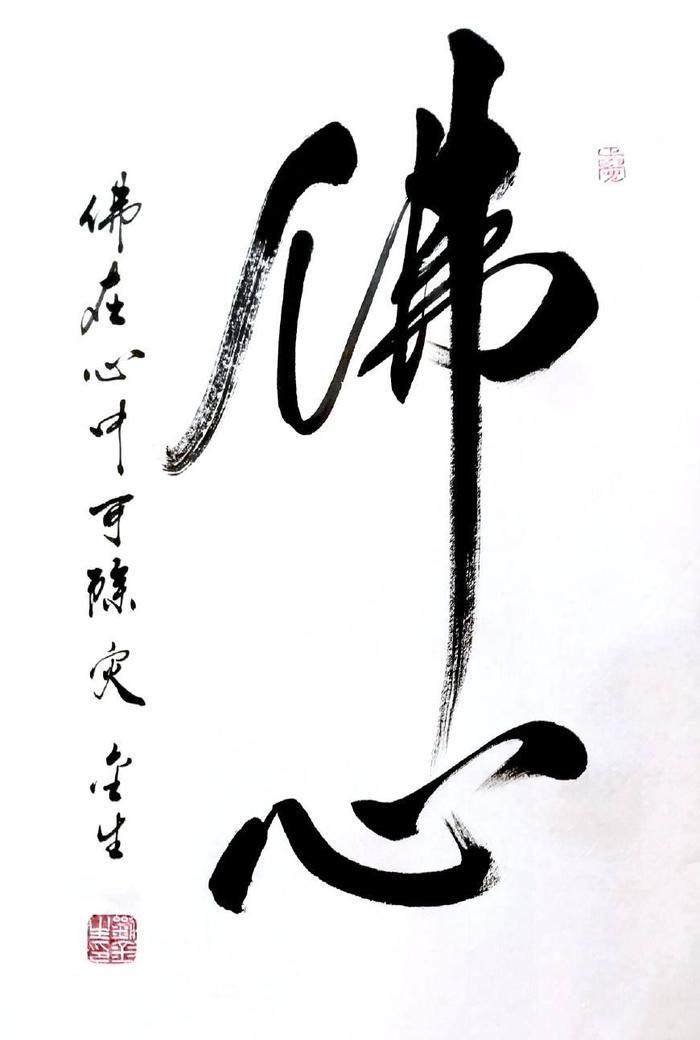 佛心
佛在心中可除灾 金生